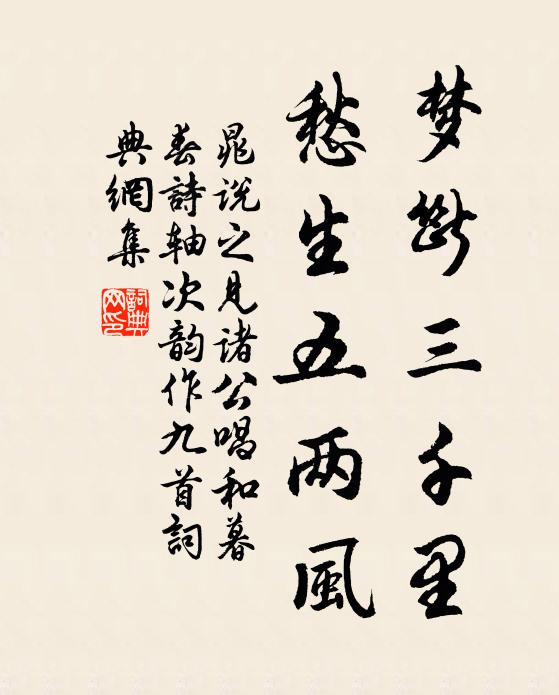 梦断三千里
愁生五两風
晁说之见诸公唱和暮
春詩轴次韵作九首詞
典網集
詞典网印